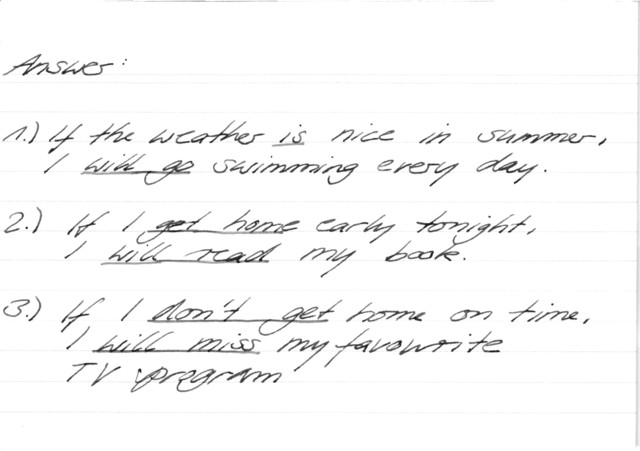 Answer:
1.) If the weather is nice in summer,
I will go swimming every day.
2.) If I get home early tonight,
I will read my book.
3.) If I don't get home on time,
I will miss my favourite
TV program